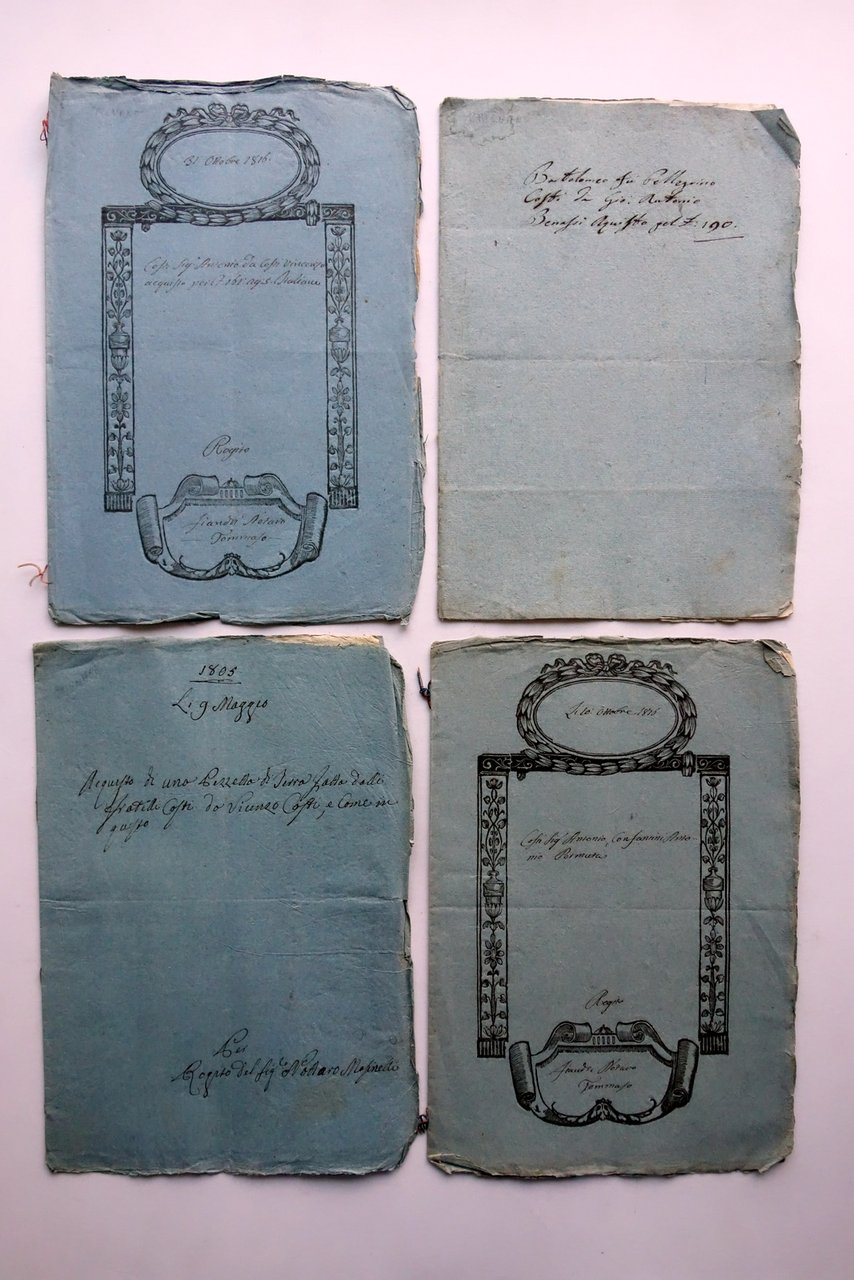 31 Ottobre 1816.
Costi Sig.r Antonio da Costi Vincenzo
acquisto per Italiane
Rogito
Notaro
Tommaso
Bartolomeo Pellegrino
Costi da Gio: Antonio
Benassi Aquisto per 190.
1805
Li 9 Maggio
Acquisto di uno Pezzetto di Terra fatto dalli
Fratelli Costi da Vicenzo Costi, e Come in
questo
Per
Rogito del Sig.r Nottaro
Li Ottobre 1816
Costi Sig.r Antonio, con Fantini Anto-
nio Permuta
Rogito
Notaro
Tommaso